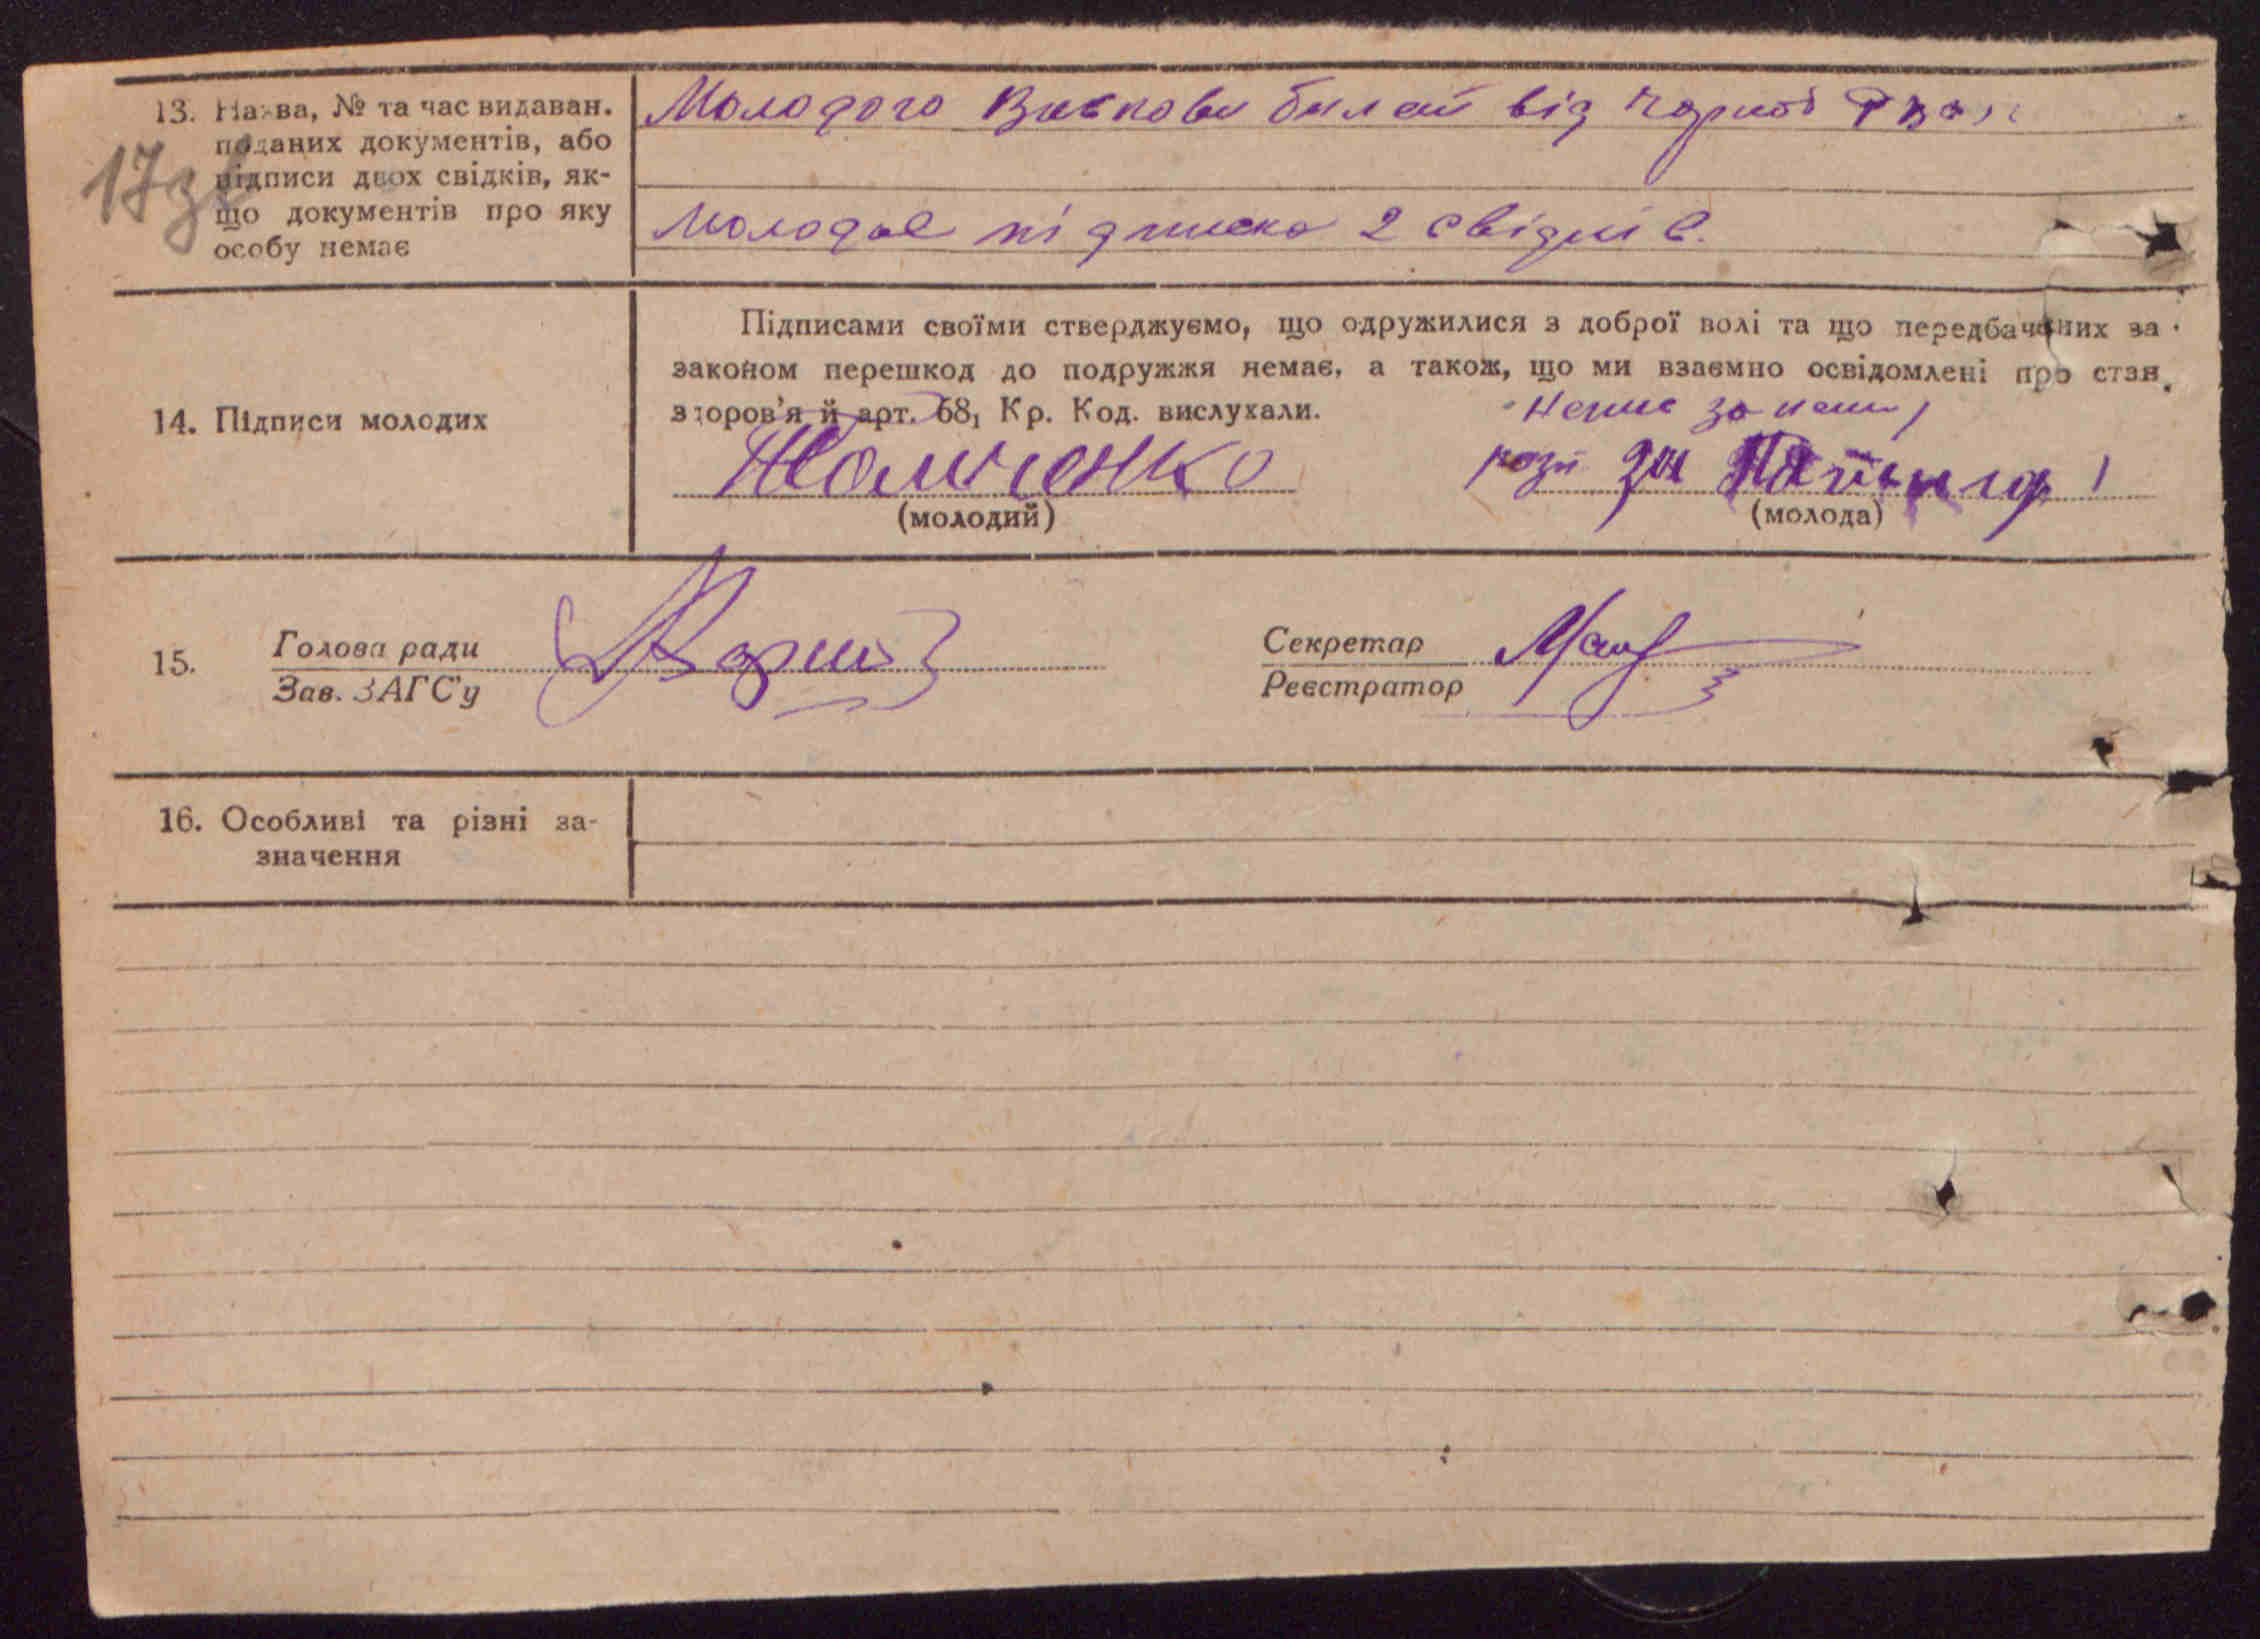 13. Назва, № та час видаван.
поданих документів, або
підписи двох свідків, як-
що документів про яку
особу немає
17
Молодого від
Молодое підписка 2 свідків.
14. Підписи молодих
Підписами своїми стверджуємо, що одружилися з доброї волі та що передбачених за
законом перешкод до подружжя немає, а також, що ми взаємно освідомлені про стан
здоров'я й арт. 68, Кр. Код. вислухали.
за
(молодий)
(молода)
15.
Голова ради
Зав. ЗАГС'у
Секретар
Реєстратор
16. Особливі та різні за-
значення